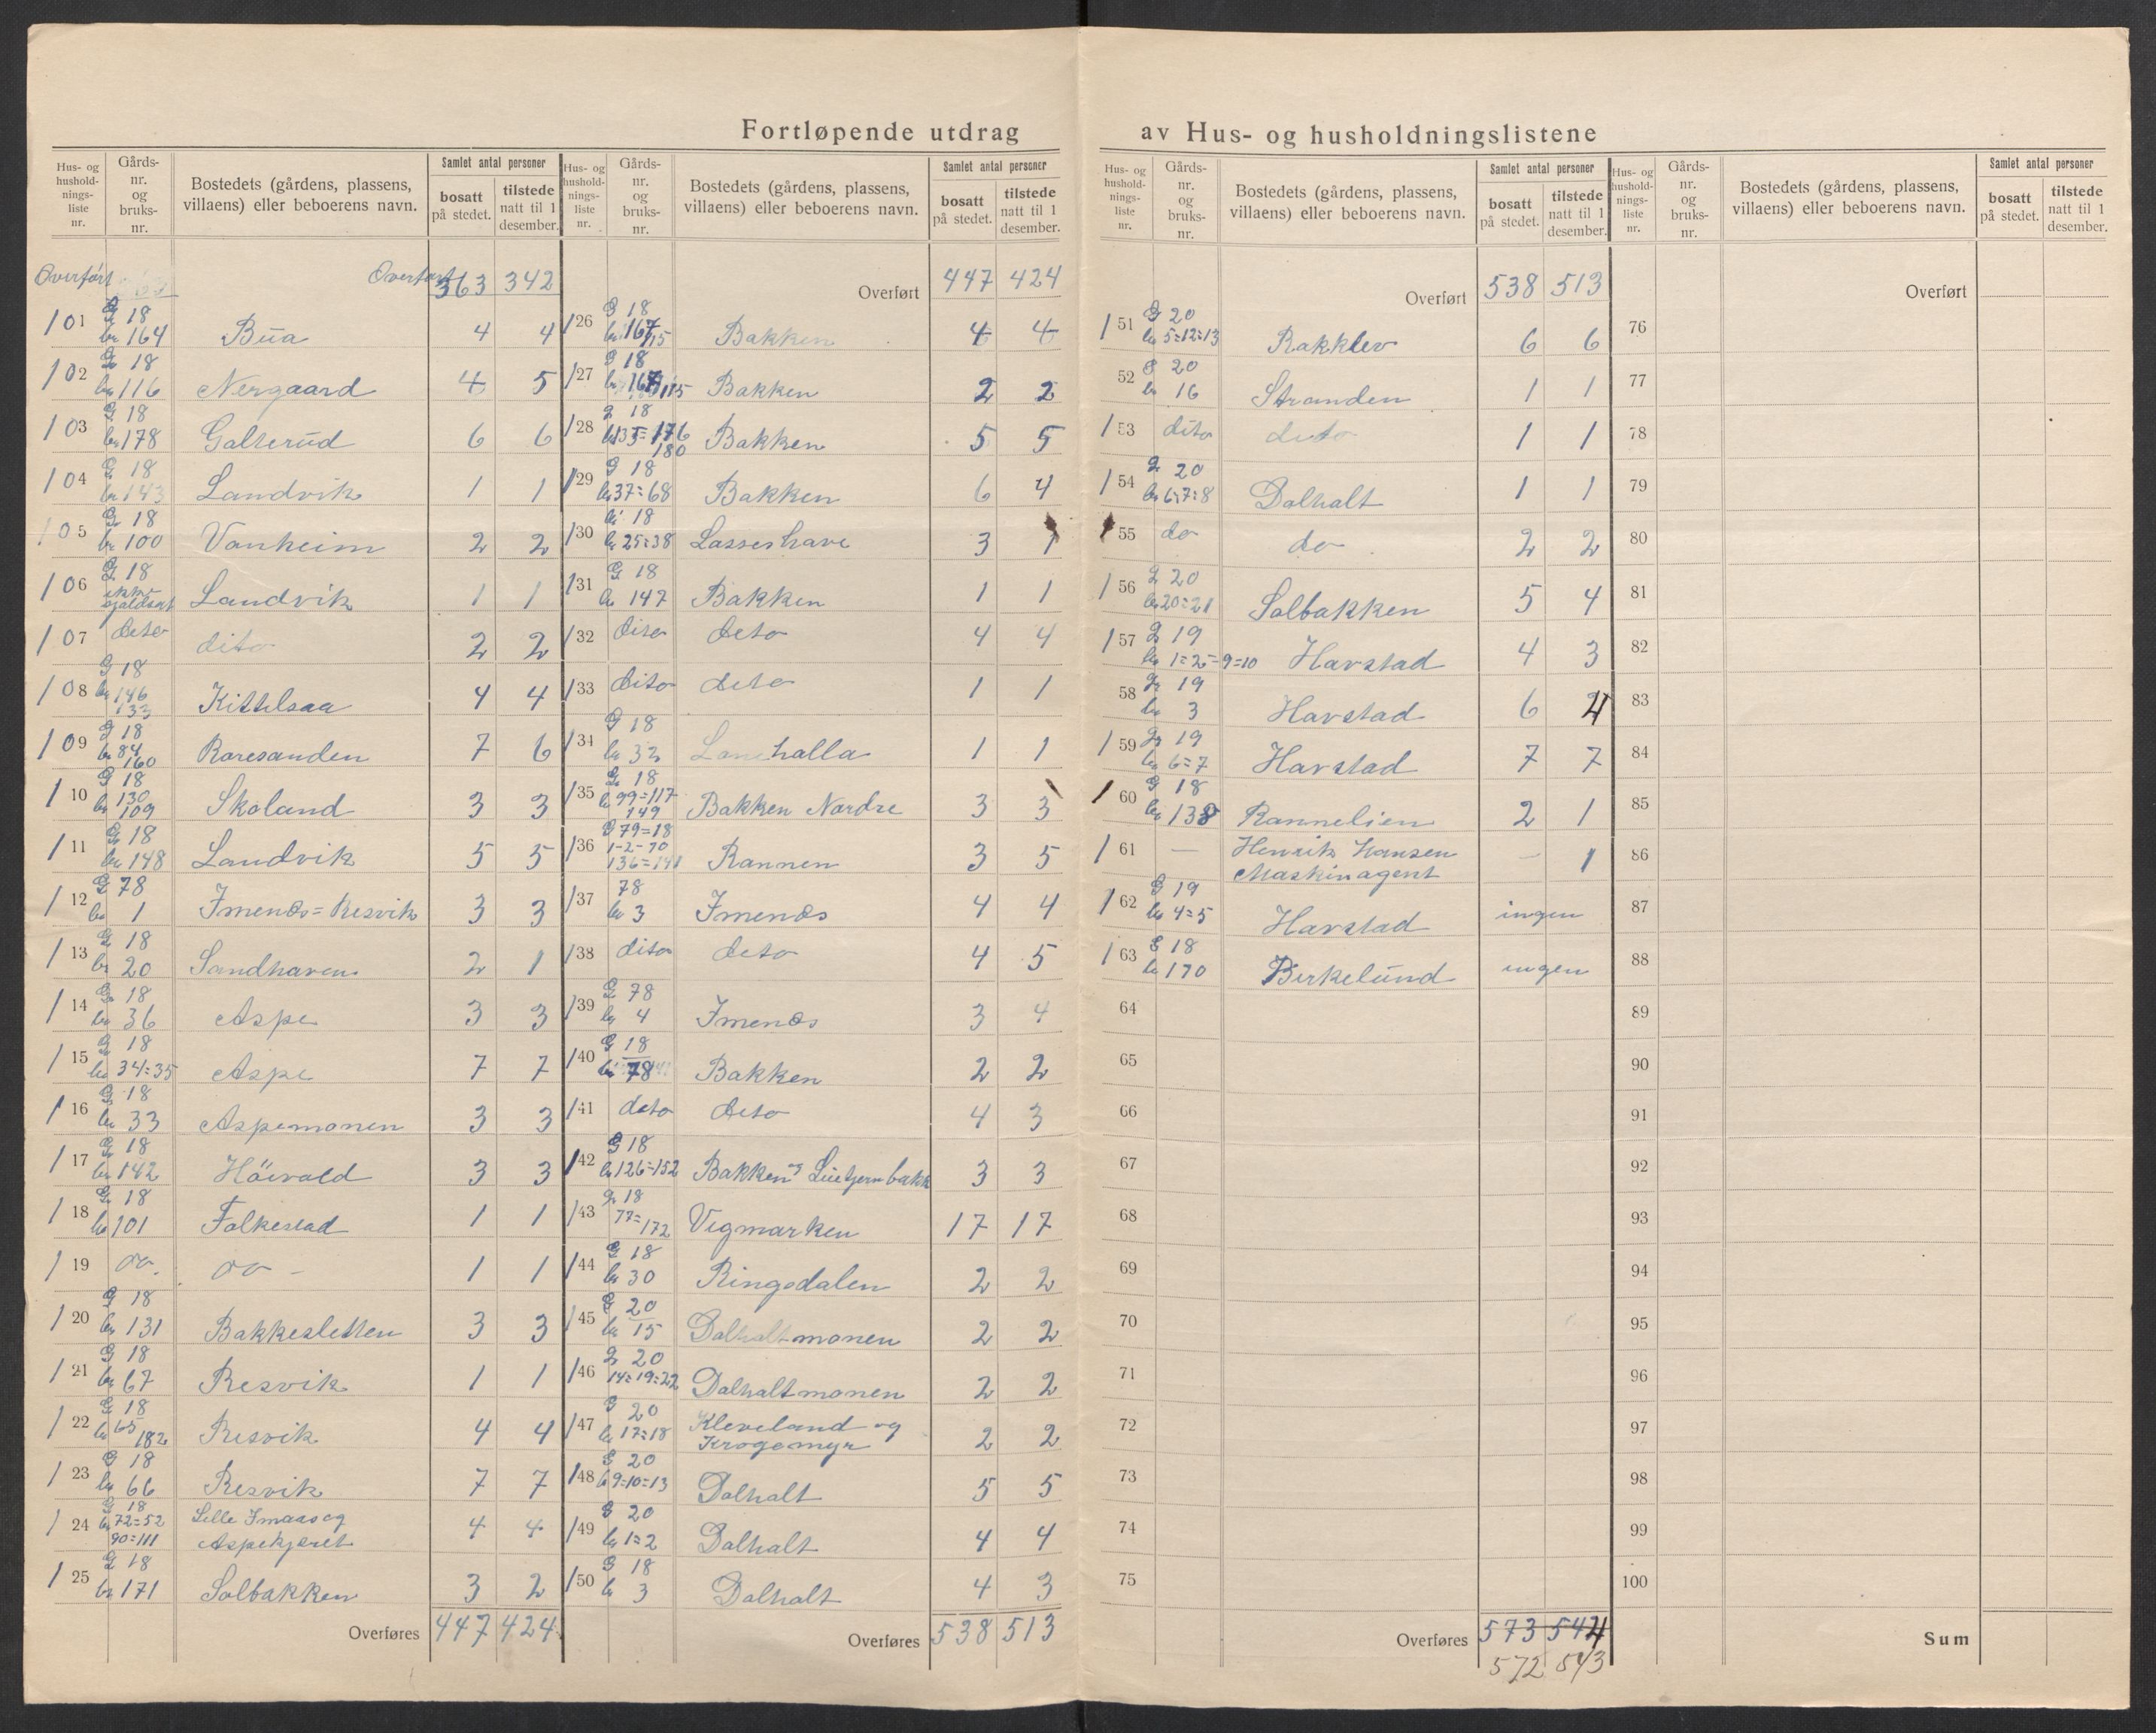 Fortløpende utdrag av Hus- og husholdningslistene
Hus- og husholdnings-liste nr. | Gårds-nr. og bruks-nr. | Bostedets (gårdens, plassens, villaens) eller beboerens navn. | Samlet antal personer | bosatt på stedet. | tilstede natt til 1 desember.
Overført Overført 363 342
101 G 18 br 164 Bua 4 4
102 G 18 br 116 Nergaard 4 5
103 G 18 br 178 Galterud 6 6
104 G 18 br 143 Landvik 1 1
105 G 18 br 100 Vanheim 2 2
106 G 18 ikke Landvik 1 1
107 dito dito 2 2
108 G 18 br 146 133 Kittelsaa 4 4
109 G 18 br 84 160 Roresanden 7 6
110 G 18 br 130 109 Skoland 3 3
111 G 18 br 148 Landvik 5 5
112 G 78 br 1 Imenes = Resvik 3 3
113 G 18 br 20 Sandhaven 2 1
114 G 18 br 36 Aspe 3 3
115 G 18 br 34=35 Aspe 7 7
116 G 18 br 33 Aspemonen 3 3
117 G 18 br 142 Höivold 3 3
118 G 18 br 101 Folkestad 1 1
119 do. do - 1 1
120 G 18 br 131 Bakkesletten 3 3
121 G 18 br 67 Resvik 1 1
122 G 18 br 65 182 Resvik 4 4
123 G 18 br 66 Resvik 7 7
124 G 18 br 72=52 90=111 Lille Imaas og Aspekjæret 4 4
125 G 18 br 171 Solbakken 3 2
Overføres 447 424
Hus- og husholdnings-liste nr. | Gårds-nr. og bruks-nr. | Bostedets (gårdens, plassens, villaens) eller beboerens navn. | Samlet antal personer | bosatt på stedet. | tilstede natt til 1 desember.
Overført 447 424
126 G 18 br 167/15 Bakken 4 4
127 G 18 br 167 115 Bakken 2 2
128 G 18 br 135=176 180 Bakken 5 5
129 G 18 br 37=68 Bakken 6 4
130 G 18 br 25=38 Lasseshave 3 1
131 G 18 br 147 Bakken 1 1
132 dito dito 4 4
133 dito dito 1 1
134 G 18 br 32 halla 1 1
135 G 18 br 99=117 149 Bakken Nordre 3 3
136 G 79=18 1-2-70 136=141 Rannen 3 5
137 78 br 3 Imenes 4 4
138 dito dito 4 5
139 G 78 br 4 Imenes 3 4
140 G 18 br 78 Bakken 2 2
141 dito dito 4 3
142 G 18 br 126=152 Bakken og Liutjernbakk 3 3
143 G 18 77=172 Vegmarken 17 17
144 G 18 br 30 Ringsdalen 2 2
145 G 20 br 15 Dalholtmonen 2 2
146 G 20 14=19=22 Dalholtmonen 2 2
147 G 20 br 17=18 Kleveland og Krogemyr 2 2
148 G 20 br 9=10=13 Dalholt 5 5
149 G 20 br 1=2 Dalholt 4 4
150 G 18 br 3 Dalholt 4 3
Overføres 538 513
Hus- og husholdnings-liste nr. | Gårds-nr. og bruks-nr. | Bostedets (gårdens, plassens, villaens) eller beboerens navn. | Samlet antal personer | bosatt på stedet. | tilstede natt til 1 desember.
Overført 538 513
151 G 20 br 5=12=13 Rakklev 6 6
52 G 20 br 16 Stranden 1 1
153 dito dito 1 1
154 G 20 br 6=7=8 Dalholt 1 1
155 do do 2 2
156 G 20 br 20=21 Solbakken 5 4
157 G 19 br 1=2=9=10 Harstad 4 3
58 G 19 br 3 Harstad 6 4
159 G 19 br 6=7 Harstad 7 7
160 G 18 br 138 Rannelien 2 1
161 — Henrik Hansen Maskinagent — 1
162 G 19 br 4=5 Harstad ingen
163 G 18 br 170 Birkelund ingen
64
65
66
67
68
69
70
71
72
73
74
75
Overføres 573 544
572 543
Hus- og husholdnings-liste nr. | Gårds-nr. og bruks-nr. | Bostedets (gårdens, plassens, villaens) eller beboerens navn. | Samlet antal personer | bosatt på stedet. | tilstede natt til 1 desember.
Overført
76
77
78
79
80
81
82
83
84
85
86
87
88
89
90
91
92
93
94
95
96
97
98
99
100
Sum